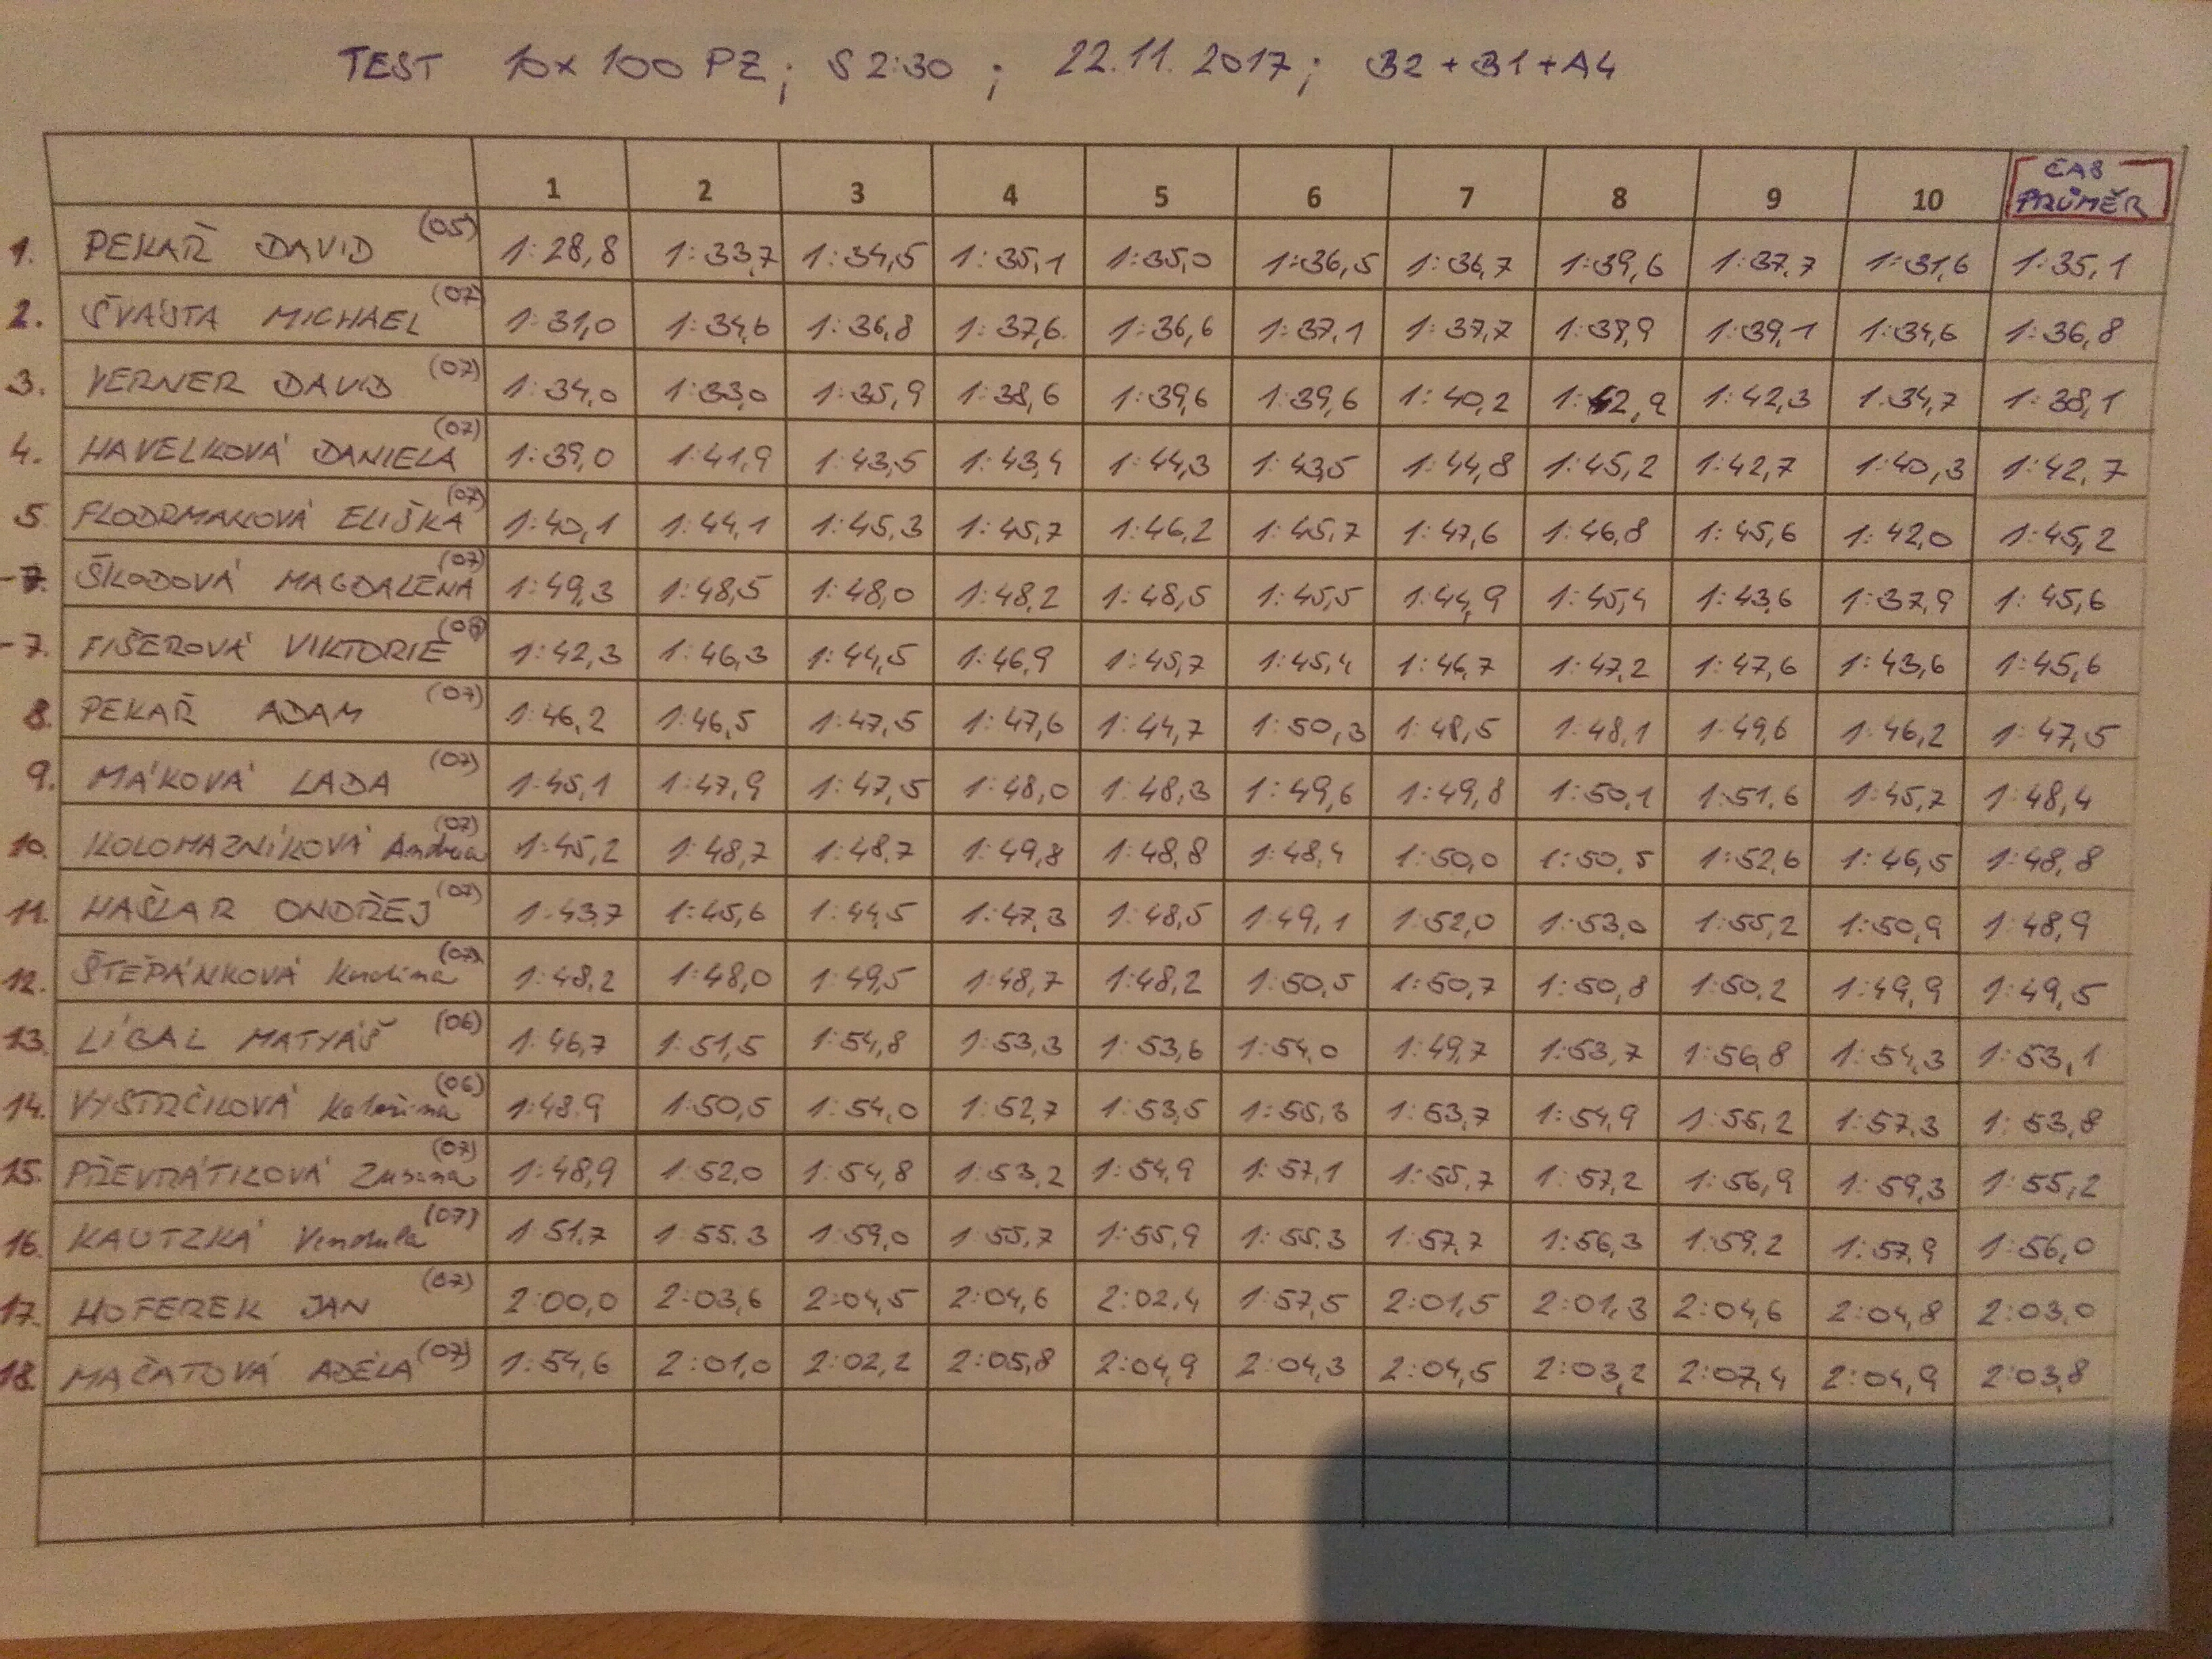 TEST 10x100 PZ; S 2:30; 22.11.2017; B2+B1+A4
1 2 3 4 5 6 7 8 9 10 ČAS PRŮMĚR
1. PEKAŘ DAVID (05) 1:28,8 1:33,7 1:34,5 1:35,1 1:35,0 1:36,5 1:36,7 1:39,6 1:37,7 1:31,6 1:35,1
2. ŠVÁSTA MICHAEL (07) 1:31,0 1:34,6 1:36,8 1:37,6 1:36,6 1:37,1 1:37,7 1:39,9 1:39,1 1:34,6 1:36,8
3. VERNER DAVID (07) 1:34,0 1:33,0 1:35,9 1:38,6 1:39,6 1:39,6 1:40,2 1:42,9 1:42,3 1:34,7 1:38,1
4. HAVELKOVÁ DANIELA (07) 1:39,0 1:41,9 1:43,5 1:43,4 1:44,3 1:43,5 1:44,8 1:45,2 1:42,7 1:40,3 1:42,7
5. FLODRMANOVÁ ELIŠKA (07) 1:40,1 1:44,1 1:45,3 1:45,7 1:46,2 1:45,7 1:47,6 1:46,8 1:45,6 1:42,0 1:45,2
-7. ŠKODOVÁ MAGDALENA (07) 1:49,3 1:48,5 1:48,0 1:48,2 1:48,5 1:45,5 1:44,9 1:45,4 1:43,6 1:37,9 1:45,6
-7. FIŠEROVÁ VIKTORIE 1:42,3 1:46,3 1:44,5 1:46,9 1:45,7 1:45,4 1:46,7 1:47,2 1:47,6 1:43,6 1:45,6
8. PEKAŘ ADAM (07) 1:46,2 1:46,5 1:47,5 1:47,6 1:44,7 1:50,3 1:48,5 1:48,1 1:49,6 1:46,2 1:47,5
9. MÁKOVÁ LADA (07) 1:45,1 1:47,9 1:47,5 1:48,0 1:48,3 1:49,6 1:49,8 1:50,1 1:51,6 1:45,7 1:48,4
10. KOLOMAZNÍKOVÁ Andrea (07) 1:45,2 1:48,7 1:48,7 1:49,8 1:48,8 1:48,4 1:50,0 1:50,5 1:52,6 1:46,5 1:48,8
11. HAŠLAR ONDŘEJ (07) 1:43,7 1:45,6 1:44,5 1:47,3 1:48,5 1:49,1 1:52,0 1:53,0 1:55,2 1:50,9 1:48,9
12. ŠTĚPÁNKOVÁ (07) 1:48,2 1:48,0 1:49,5 1:48,7 1:48,2 1:50,5 1:50,7 1:50,8 1:50,2 1:49,9 1:49,5
13. LÍBAL MATYÁŠ (06) 1:46,7 1:51,5 1:54,8 1:53,3 1:53,6 1:54,0 1:49,7 1:53,7 1:56,8 1:54,3 1:53,1
14. VYSTRČILOVÁ Kateřina (06) 1:48,9 1:50,5 1:54,0 1:52,7 1:53,5 1:55,3 1:53,7 1:54,9 1:55,2 1:57,3 1:53,8
15. PŘEVRÁTILOVÁ Zuzana (07) 1:48,9 1:52,0 1:54,8 1:53,2 1:54,9 1:57,1 1:55,7 1:57,2 1:56,9 1:59,3 1:55,2
16. KAUTZKÁ Vendula (07) 1:51,7 1:55,3 1:59,0 1:55,7 1:55,9 1:55,3 1:57,7 1:56,3 1:59,2 1:57,9 1:56,0
17. HOFEREK JAN (07) 2:00,0 2:03,6 2:04,5 2:04,6 2:02,4 1:57,5 2:01,5 2:01,3 2:04,6 2:04,8 2:03,0
18. MAČATOVÁ ADÉLA (07) 1:54,6 2:01,0 2:02,2 2:05,8 2:04,9 2:04,3 2:04,5 2:03,2 2:07,4 2:04,9 2:03,8